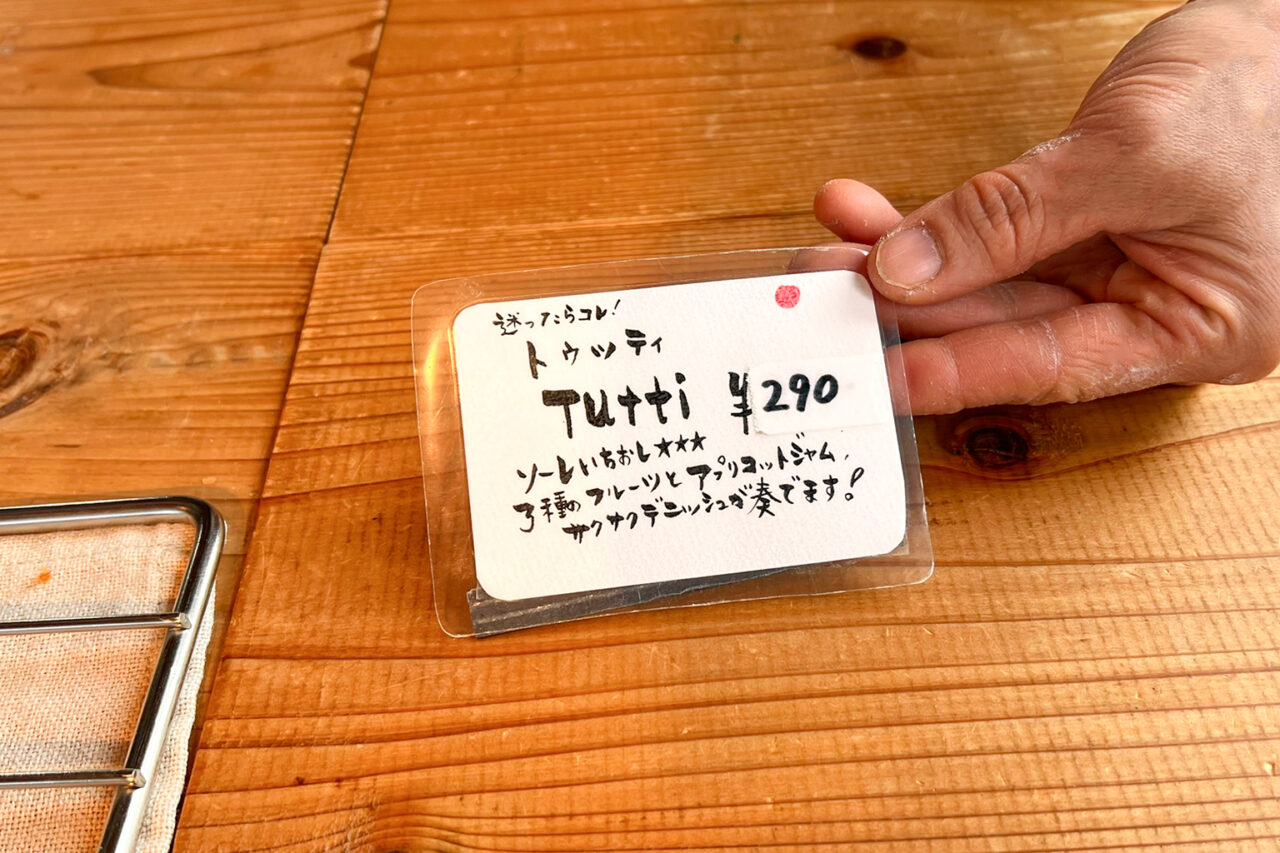 迷ったらコレ!
トゥッティ
Tutti ¥290
ソーレいちおし★★★
3種のフルーツとアプリコットジャム、
サクサクデニッシュが奏でます!